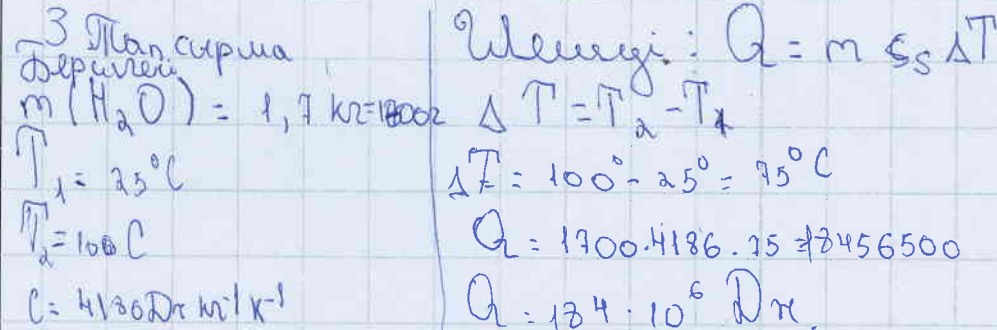 3 Тапсырма
Берилген
m(H₂O) = 1,7 кг=1700г
T₁ = 25°C
T₂=100 C
C= 4186Дж кг⁻¹ К⁻¹
Шешуі: Q = m ΔT
ΔT = T₂ - T₁
ΔT = 100° - 25° = 75°C
Q = 1700·4186·75 =18456500
Q = 184·10⁶ Дж.